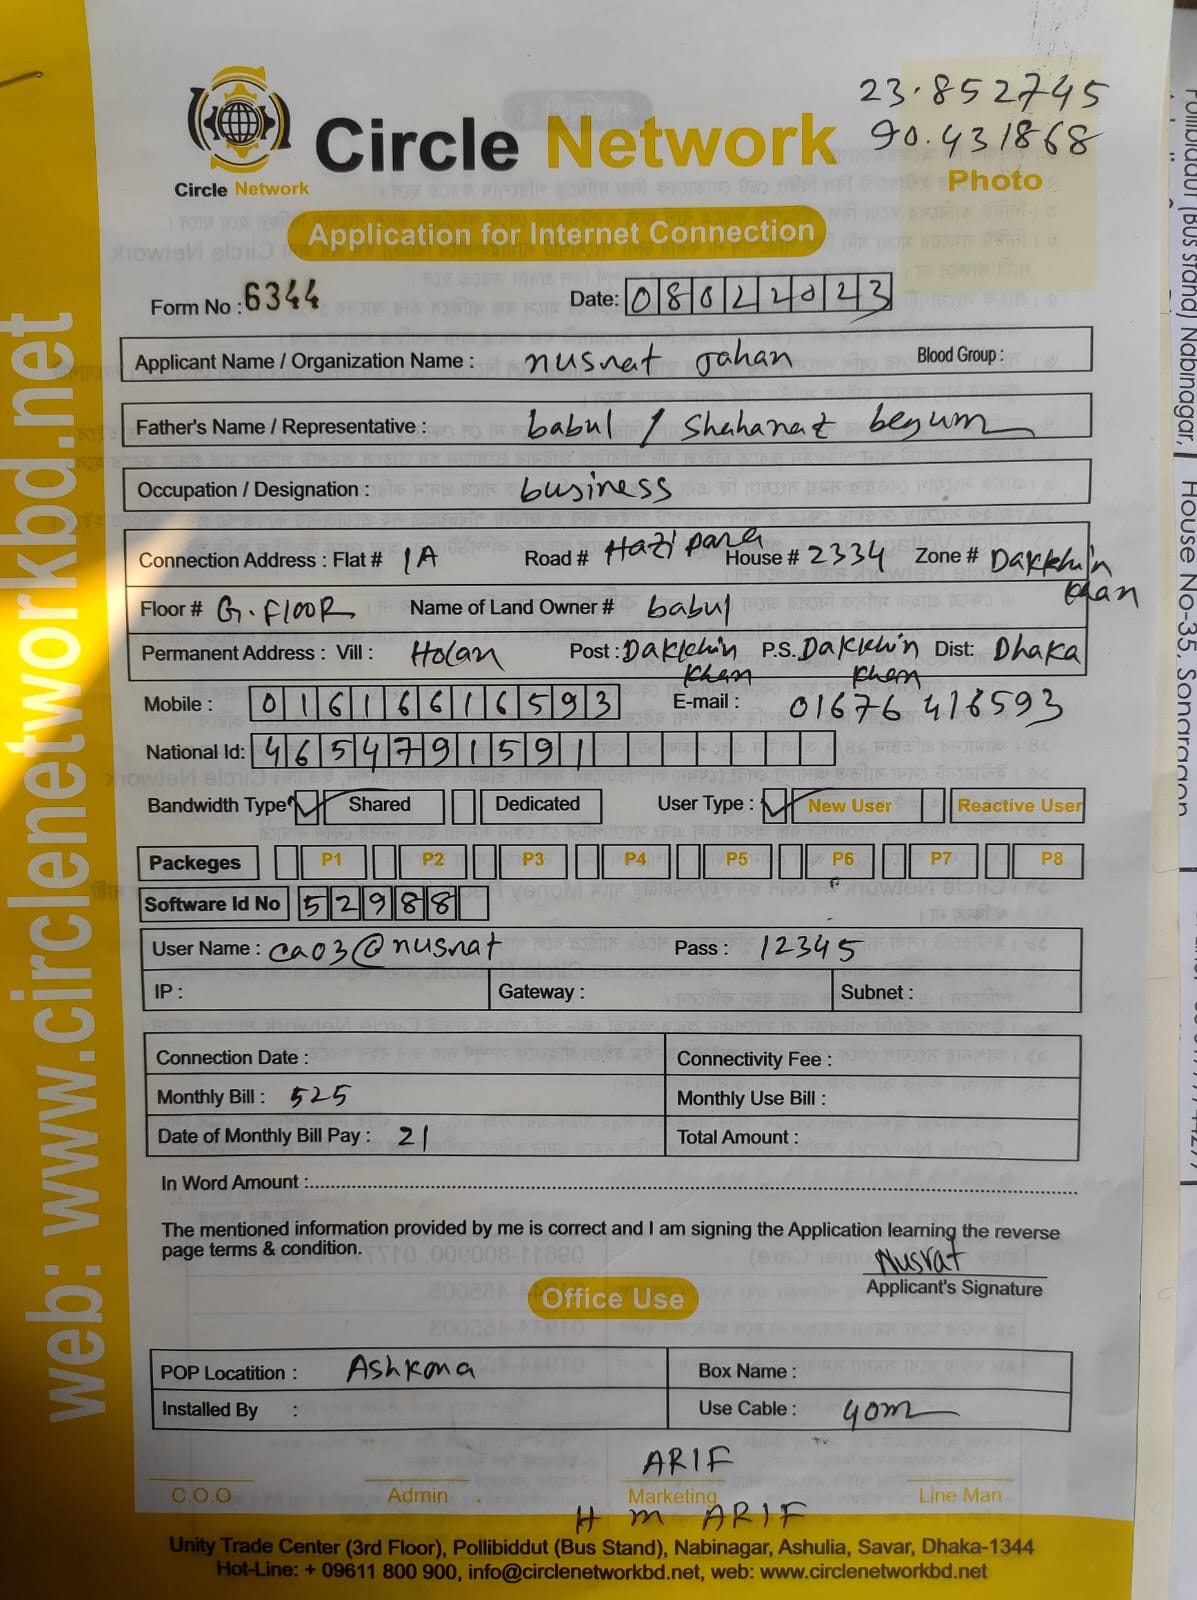 23.852745
90.431868
Circle Network
Circle Network
Photo
Application for Internet Connection
Form No : 6344 Date: 08022023
Applicant Name / Organization Name : nusrat Jahan Blood Group :
Father's Name / Representative : babul / Shahanaz begum
Occupation / Designation : business
Connection Address : Flat # 1A Road # Hazi para House # 2334 Zone # Dakkhin khan
Floor # G. FlooR Name of Land Owner # babul
Permanent Address : Vill : Holan Post : Dakkhin khan P.S. Dakkhin khan Dist: Dhaka
Mobile : 01616616593 E-mail : 01676416593
National Id: 4654791591
Bandwidth Type Shared Dedicated User Type : New User Reactive User
Packeges P1 P2 P3 P4 P5 P6 P7 P8
Software Id No 52988
User Name : ca03@nusrat Pass : 12345
IP : Gateway : Subnet :
Connection Date : Connectivity Fee :
Monthly Bill : 525 Monthly Use Bill :
Date of Monthly Bill Pay : 21 Total Amount :
In Word Amount :
The mentioned information provided by me is correct and I am signing the Application learning the reverse
page terms & condition.
Nusrat
Applicant's Signature
Office Use
POP Locatition : Ashkona Box Name :
Installed By : Use Cable : 40m
ARIF
C.O.O Admin Marketing Line Man
H m ARIF
Unity Trade Center (3rd Floor), Pollibiddut (Bus Stand), Nabinagar, Ashulia, Savar, Dhaka-1344
Hot-Line: + 09611 800 900, info@circlenetworkbd.net, web: www.circlenetworkbd.net
web: www.circlenetworkbd.net
Pollibiddut (Bus stand) Nabinagar,
House No-35, Sonargaon